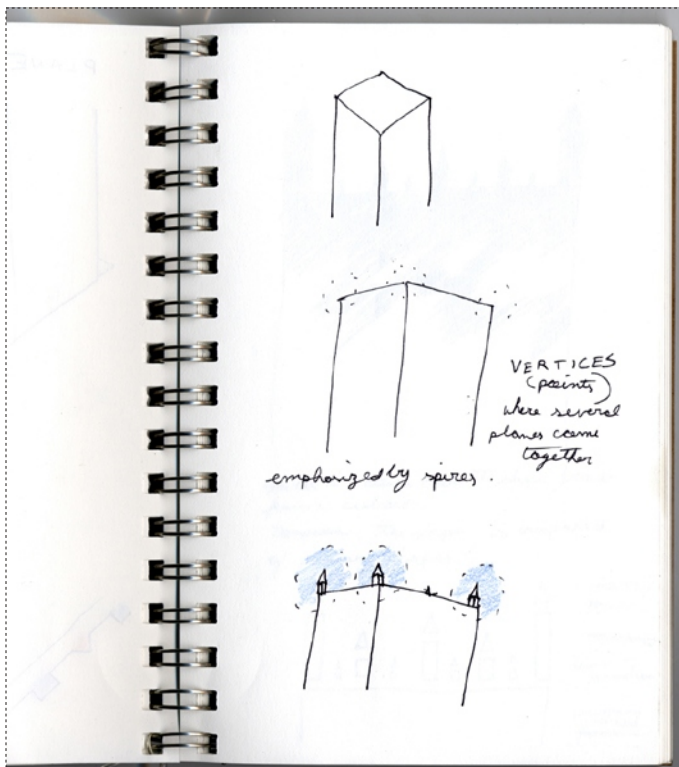 VERTICES
(points)
where several
planes come
together
emphasized by spires.